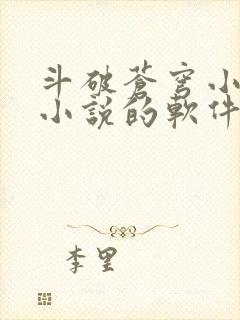 斗破蒼穹小
小說的軟件
李里